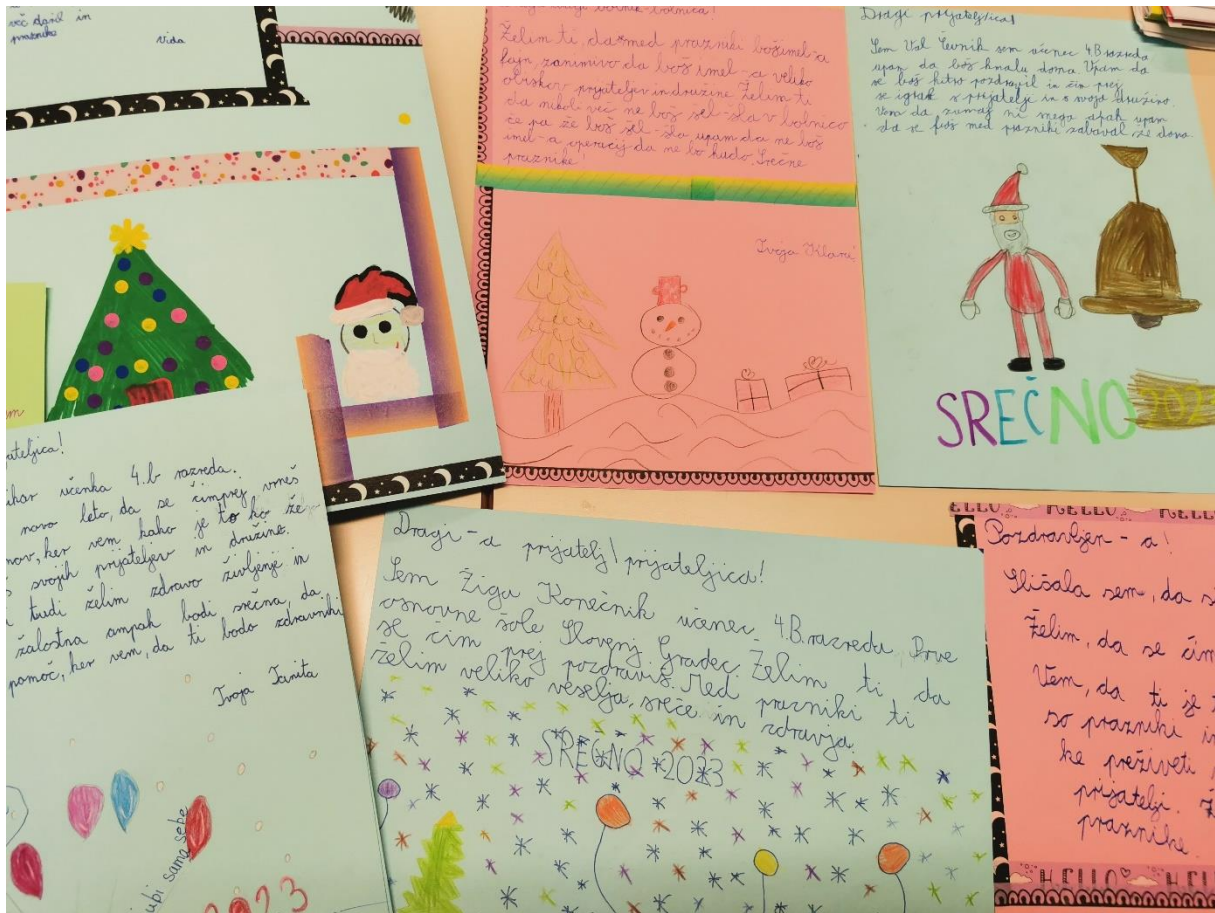 več daril in
praznike
Vida
Želim ti, da med prazniki boš imel-a
fajn, zanimivo da boš imel-a veliko
obiskov prijateljev in družine. Želim ti
da nikoli več ne boš šel-šla v bolnico
če pa že boš šel-šla upam da ne boš
imel-a operacij da ne bo hudo. Srečne
praznike!
Tvoja
Dragi prijateljica!
Sem Val sem učenec 4.B razreda
upam da boš kmalu doma. Upam da
se boš hitro pozdravil in čim prej
se igral s prijatelji in s svojo družino.
Vem da zdravja ni mega apak upam
da se boš med prazniki zabaval se doma
SREČNO 2023
ateljica!
učenka 4.b razreda.
novo leto, da se čimprej vrneš
mov, ker vem kako je to ko že
svojih prijateljev in družine.
tudi želim zdravo življenje in
žalostna ampak bodi srečna, da
pomoč, ker vem, da ti bodo zdravniki
Tvoja Tanita
ubi sama sebe
2023
Dragi-a prijatelj/prijateljica!
Sem Žiga Konečnik učenec 4.B. razreda Prve
osnovne šole Slovenj Gradec. Želim ti da
se čim prej pozdraviš. Med prazniki ti
želim veliko veselja, sreče in zdravja.
SREČNO 2023
HELLO HELLO
Pozdravljen-a!
Slišala sem, da s
Želim, da se čim
Vem, da ti je
so prazniki in
ke preživeti
prijatelji. Ž
praznike.
HELLO HEL